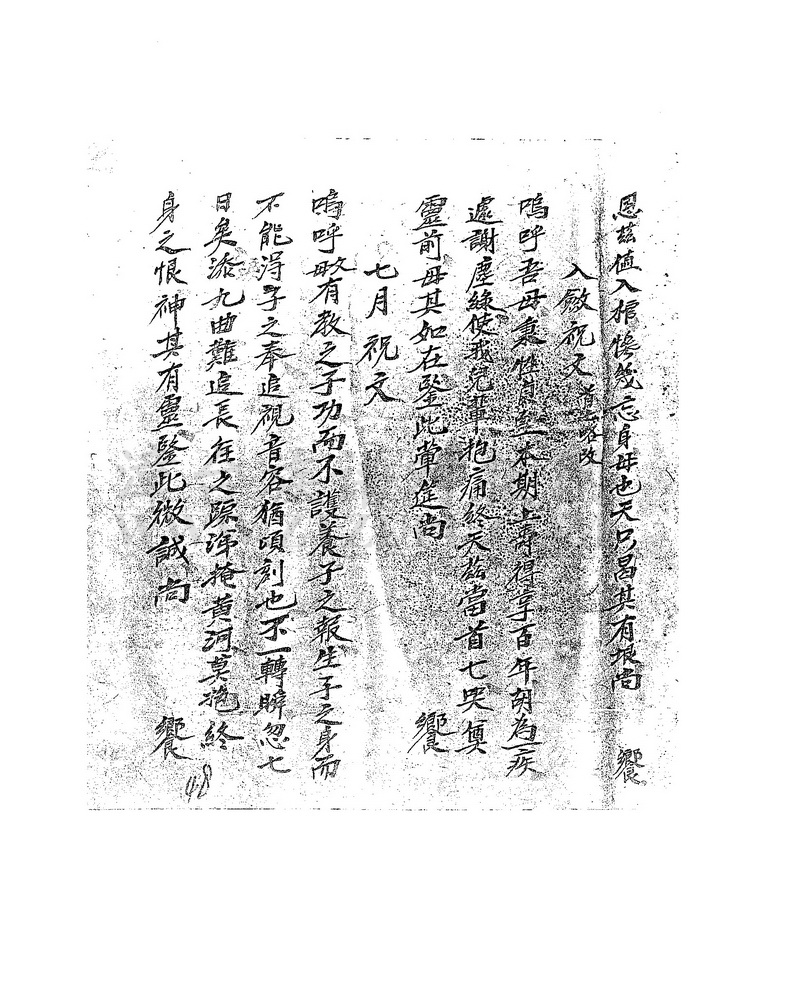 恩茲值入棺慘幾忘身毋也天只曷其有垠尚 饗
入斂祝文
嗚呼吾毋稟性自至本期上壽得享百年胡為一疾
遽謝塵緣使我兒輩抱痛終天茲當首七哭奠
靈前毋其如在鑒此葷筵尚 饗
七月祝文
嗚呼有教之子功而不護養子之報生子之身而
不能得子之奉追視音容猶頃刻也不一轉瞬忽七
日矣添九曲難追長往之踪渾掩黃河莫抱終
身之恨神其有靈鑒此微誠尚 饗
48